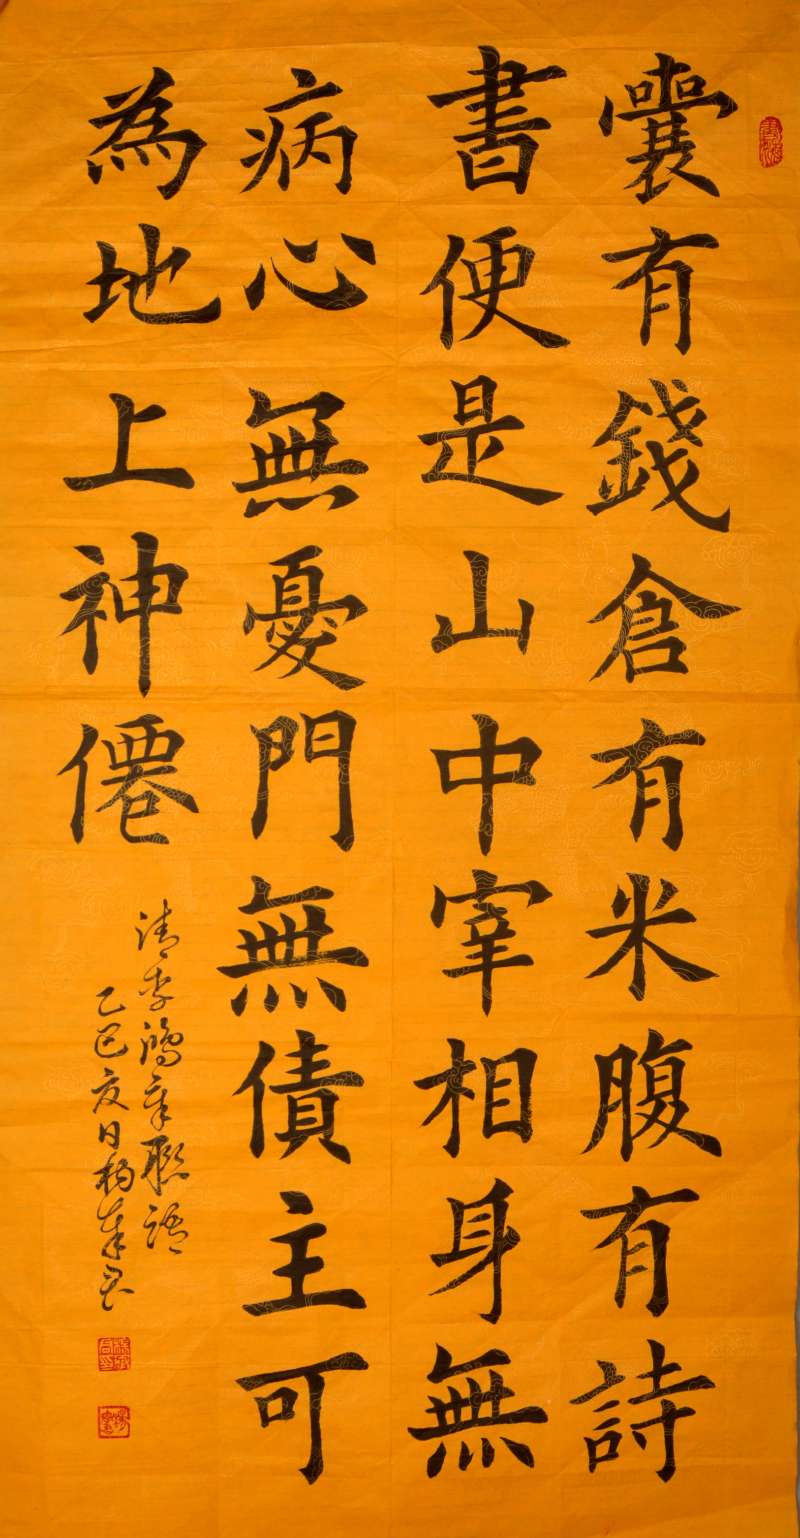 囊有錢倉有米腹有詩
書便是山中宰相身無
病心無憂門無債主可
為地上神僊
清李鴻章聯語
乙巳夏日楊